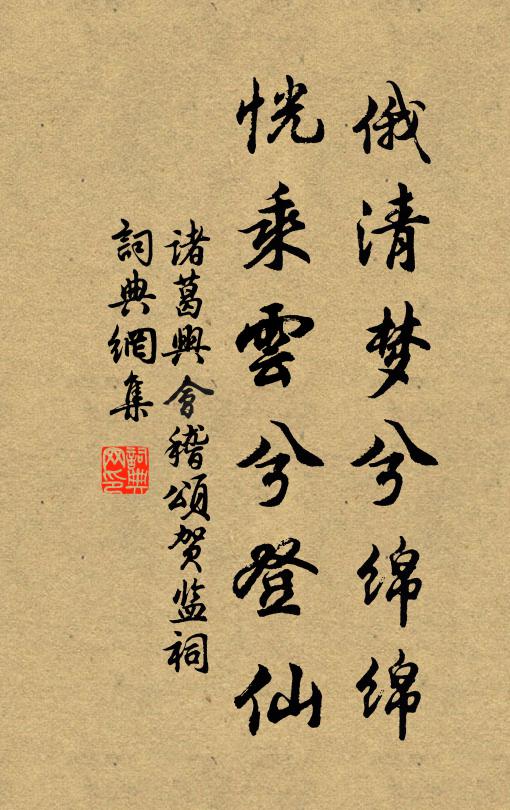 俄清梦兮绵绵
恍乘雲兮登仙
诸葛興會稽頌贺监祠
詞典網集
詞典网印